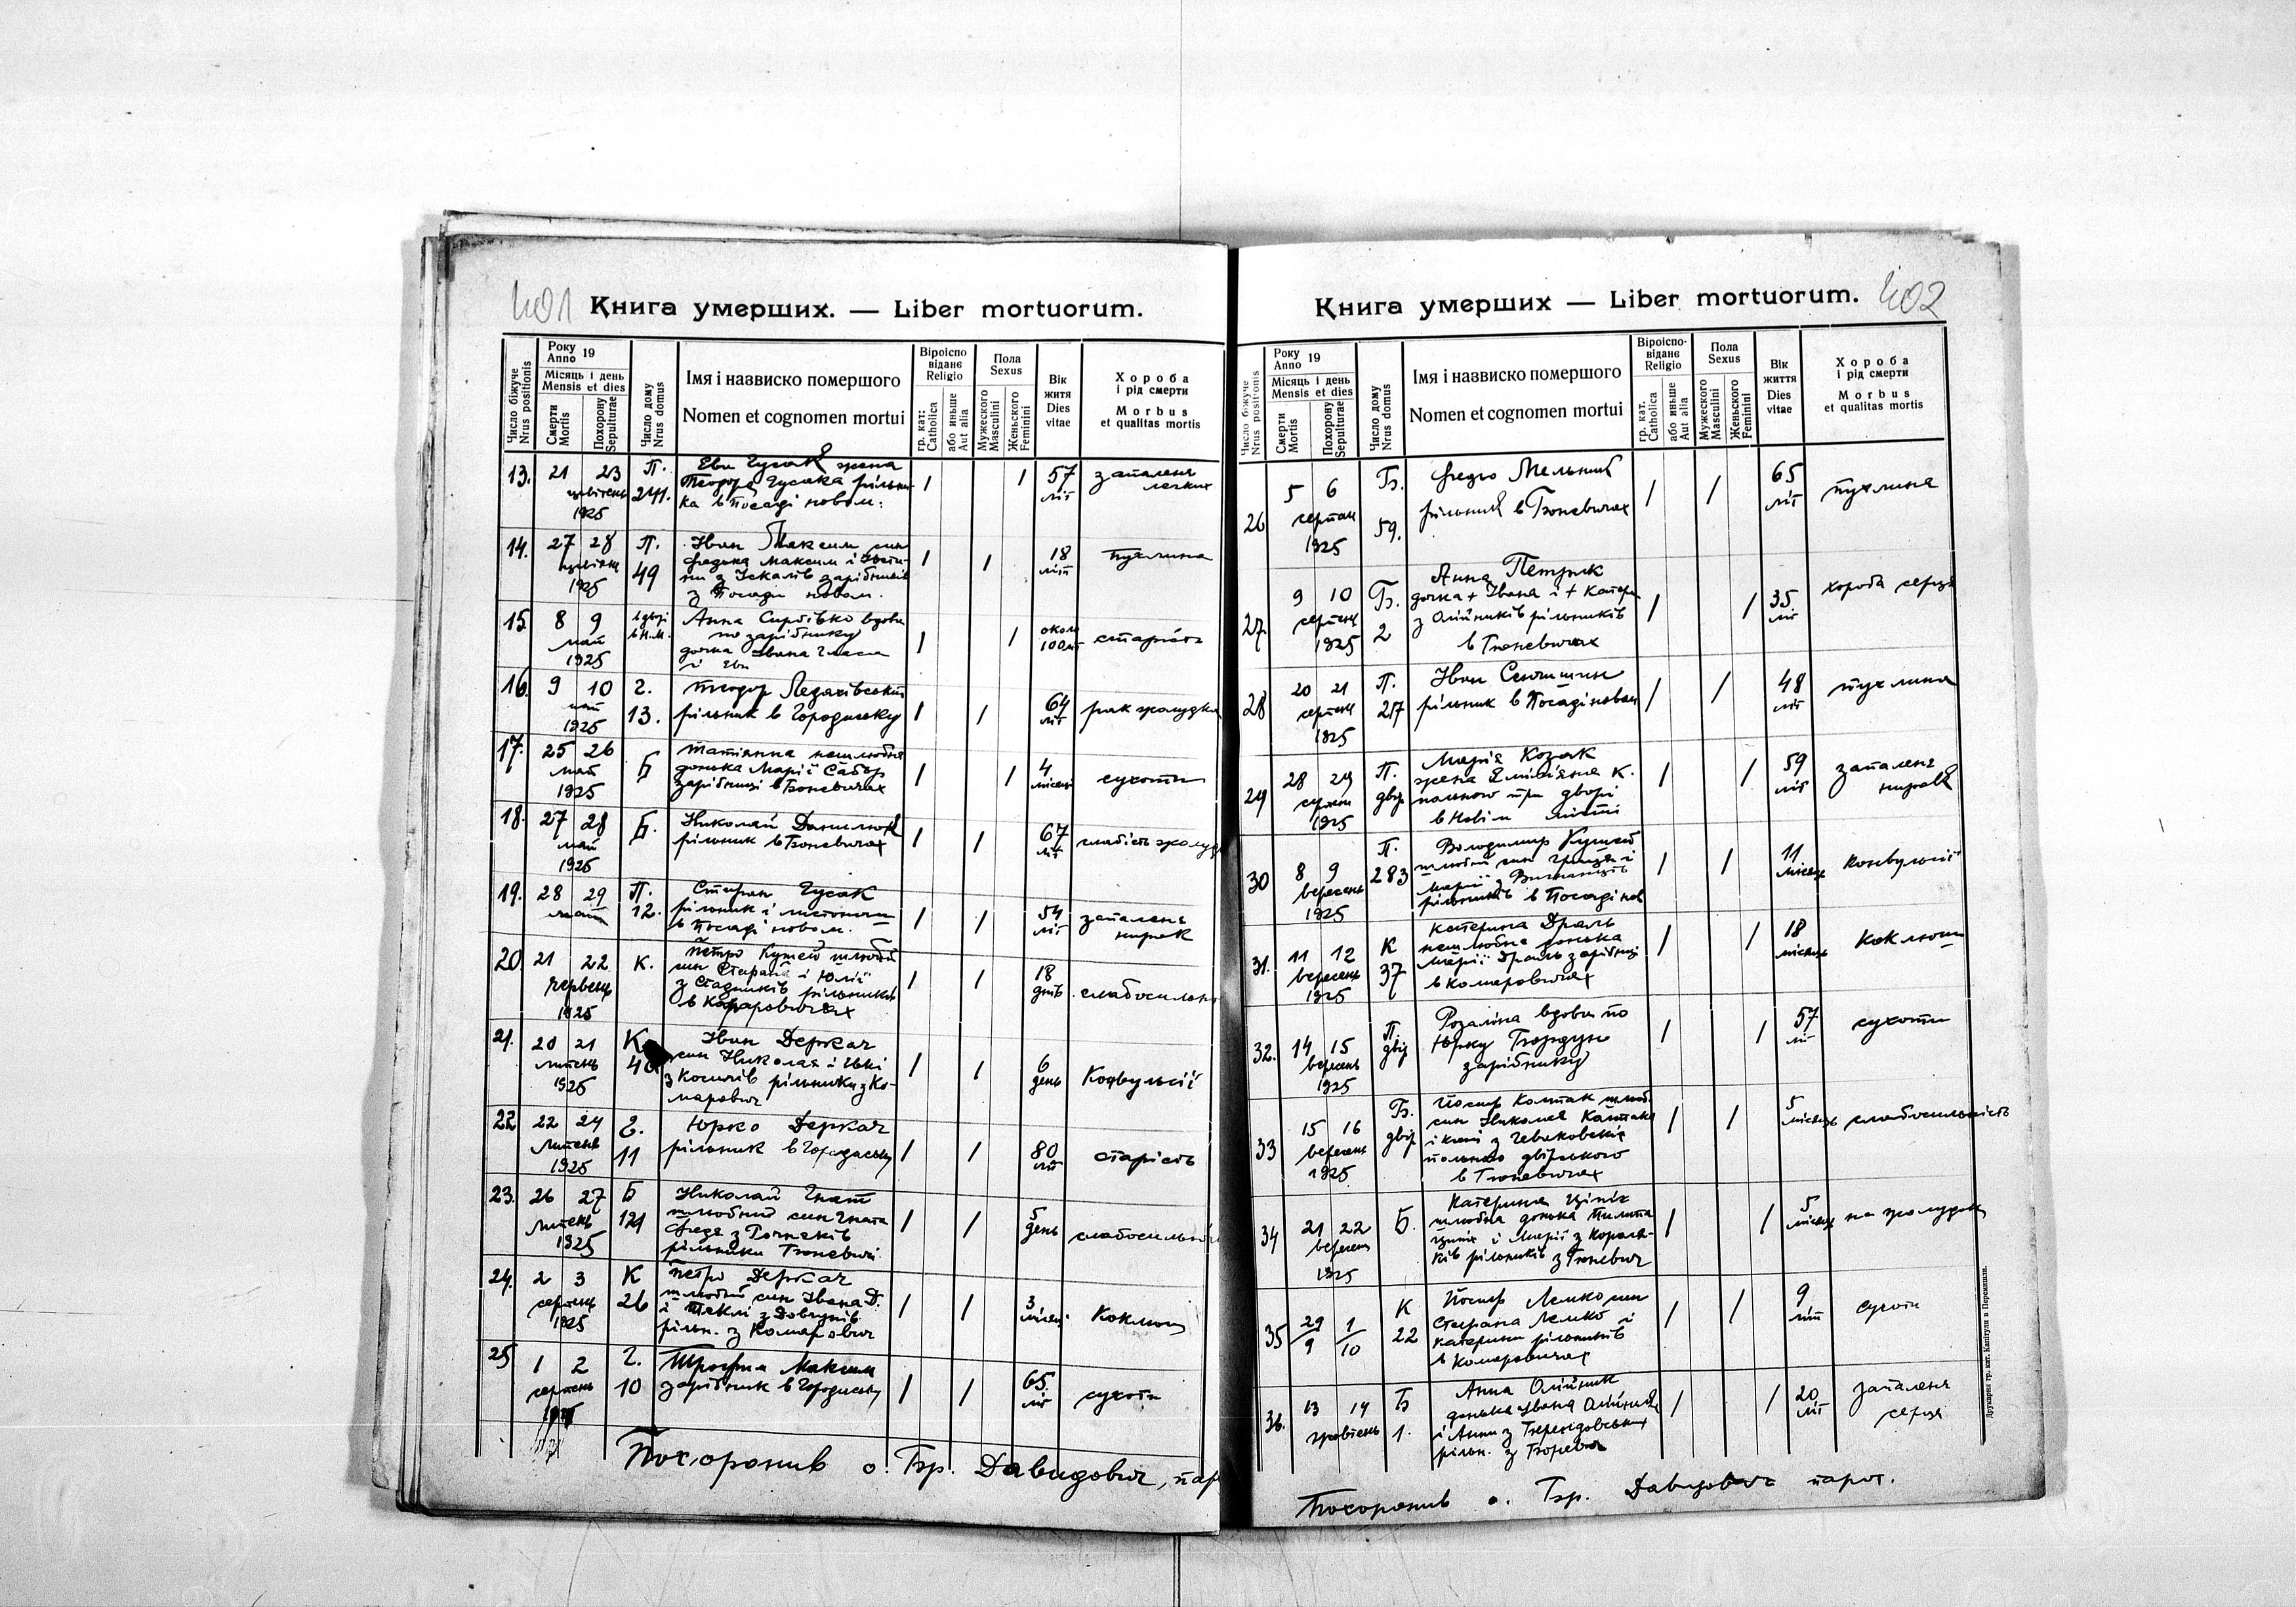 401
Книга умерших. — Liber mortuorum.
Число біжуче
Nrus positionis
Року
Anno 19
Місяць і день
Mensis et dies
Смерти
Mortis
Похорону
Sepulturae
Число дому
Nrus domus
Імя і назвиско помершого
Nomen et cognomen mortui
Віроіспо
відане
Religio
гр. кат:
Catholica
або иньше
Aut alia
Пола
Sexus
Мужеского
Masculini
Женьского
Feminini
Вік
житя
Dies
vitae
Хороба
і рід смерти
Morbus
et qualitas mortis
13. 21 23 цвітень 1925 П. 241. Ева Гусак жена
Теодора Гусака рільни-
ка в Посаді новом. 1 1 57 літ запаленє легких
14. 27 28 цвітень 1925 П. 49 Іван Максим син
Федька Максим і
з зарібників
з Посади новом. 1 1 18 літ пухлина
15. 8 9 май 1925 в дворі в Н.М. Анна вдова
по зарібнику
дочка Івана
і Еви 1 1 около 100 літ старість
16. 9 10 май 1925 Г. 13. Теодор
рільник в Городиську 1 1 64 літ рак жолудка
17. 25 26 май 1925 Б татіянна нешлюбна
донька Марії Сабор
зарібниці в Боневичах 1 1 4 місяці сухоти
18. 27 28 май 1925 Б. Николай Данилюк
рільник в Боневичах 1 1 67 літ слабість жолуд
19. 28 29 май П. 12. Стефан Гусак
рільник і листонош
в Посаді новом. 1 1 54 літ запаленє нирок
20. 21 22 червець 1925 К. Петро Кушей шлюбний
син Стефана і Юлії
з Стадників рільників
в Комаровичах 1 1 18 днів слабосильн
21. 20 21 липень 1925 К Іван Деркач
син Николая і Евки
з рільники з Ко-
марович 1 1 6 день Конвульсії
22. 22 24 липень 1925 Г. 11 Юрко Деркач
рільник в Городиську 1 1 80 літ старість
23. 26 27 липень 1925 Б 121 Николай Гнат
шлюбний син Гната
рільники Боневичі 1 1 5 день слабосильн
24. 2 3 серпень 1925 К 26 Петро Деркач
шлюбний син Івана Д.
і Теклі з
рільн. з Комарович 1 1 3 місяці Коклюш
25 1 2 серпень Г. 10 Максим
зарібник в Городиську 1 1 65 літ сухоти
Похоронив о. Гр. Давидович, пар
402
Книга умерших — Liber mortuorum.
Число біжуче
Nrus positionis
Року
Anno 19
Місяць і день
Mensis et dies
Смерти
Mortis
Похорону
Sepulturae
Число дому
Nrus domus
Імя і назвиско помершого
Nomen et cognomen mortui
Віроіспо-
відане
Religio
гр. кат.
Catholica
або иньше
Aut alia
Пола
Sexus
Мужеского
Masculini
Женьского
Feminini
Вік
життя
Dies
vitae
Хороба
і рід смерти
Morbus
et qualitas mortis
26 5 6 серпень 1925 Б. 59. Федро Мельник
рільник в Боневичах 1 1 65 літ пухлина
27. 9 10 серпень 1925 Б. 2 Анна Петрик
дочка + Івана і + Катери
з Олійників рільників
в Боневичах 1 1 35 літ хороба серця
28 20 21 серпень 1925 П. 217 Іван
рільник в Посаді новом 1 1 48 літ пухлина
29 28 29 серпень 1925 П. двір Марія Козак
жена К.
польного при дворі
в Новім місті 1 1 59 літ запаленє нирок
30 8 9 вересень 1925 П. 283 Володимир Кушей
шлюбний син і
Марії з
рільників в Посаді нов 1 1 11 місяців Конвульсії
31. 11 12 вересень 1925 К 37 Катерина Драль
нешлюбна донька
Марії Драль зарібниці
в Комаровичах 1 1 18 місяців Коклюш
32. 14 15 вересень 1925 П. двір Розаліна вдова по
Юрку
зарібнику 1 1 57 літ сухоти
33 15 16 вересень 1925 Б. двір Йосиф шлюб.
син Николая
і з
польного двірського
в Боневичах 1 1 5 місяців слабосильність
34 21 22 вересень 1925 Б. Катерина Ціпік
шлюбна донька Пилипа
Ціпік і Марії з Короля-
ків рільників з Боневич 1 1 5 місяців на жолудок
35 29/9 1/10 К 22 Йосиф Лемко син
Стефана Лемко і
Катерини рільників
в Комаровичах 1 1 9 літ сухоти
36. 13 14 жовтень Б 1. Анна Олійник
донька Івана Олійник
і Анни з
рільн. з Боневич 1 1 20 літ запаленя серця
Похоронив о. Гр. Давидович парох.
Друкарня гр. кат. Капітули в Перемишли.